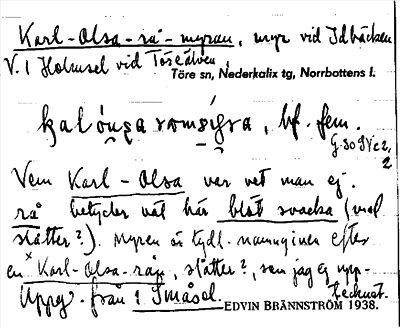 Karl-Olsa-rå-myran, myr vid Idbäcken
V. I Holmsel vid Töreälven,
Töre sn, Nederkalix tg, Norrbottens l.
bf. fem.
Vem Karl-Olsa var vet man ej.
rå betyder väl här blöt svacka (med
slåtter?). Myren är tydl. namngiven efter
en Karl-Olsa-rån, slåtter?, som jag ej upp-
tecknat.
Uppg. från 1 Småsel.
EDVIN BRÄNNSTRÖM 1938.